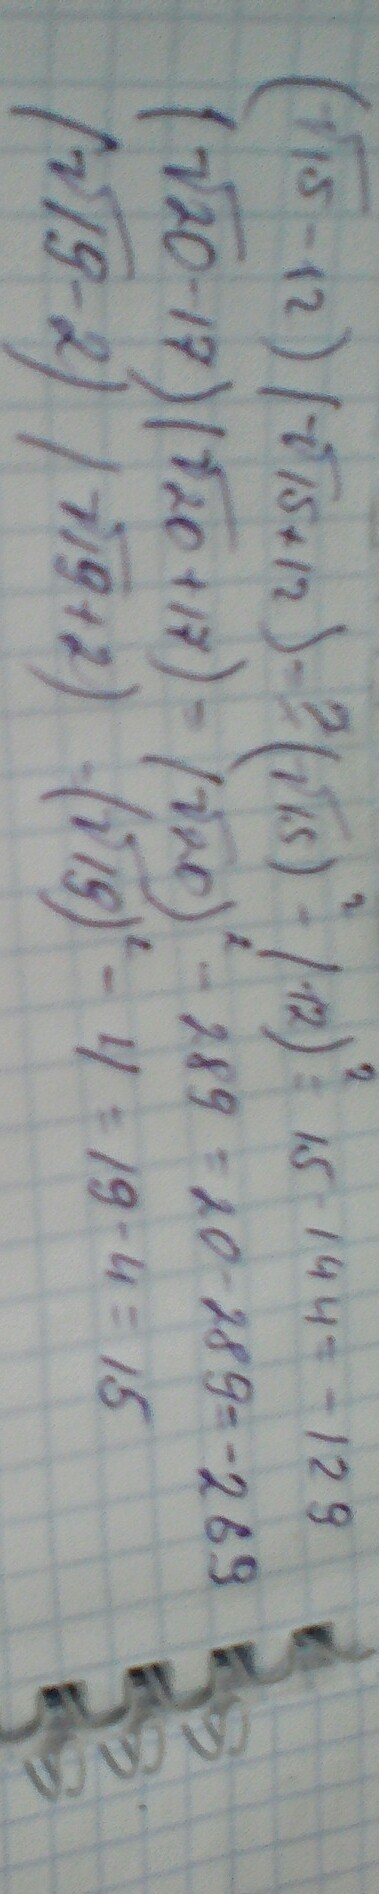 (√15 - 12) (√15 + 12) = (√15)² - (12)² = 15 - 144 = -129
(√20 - 17) (√20 + 17) = (√20)² - 289 = 20 - 289 = -269
(√19 - 2) (√19 + 2) = (√19)² - 4 = 19 - 4 = 15